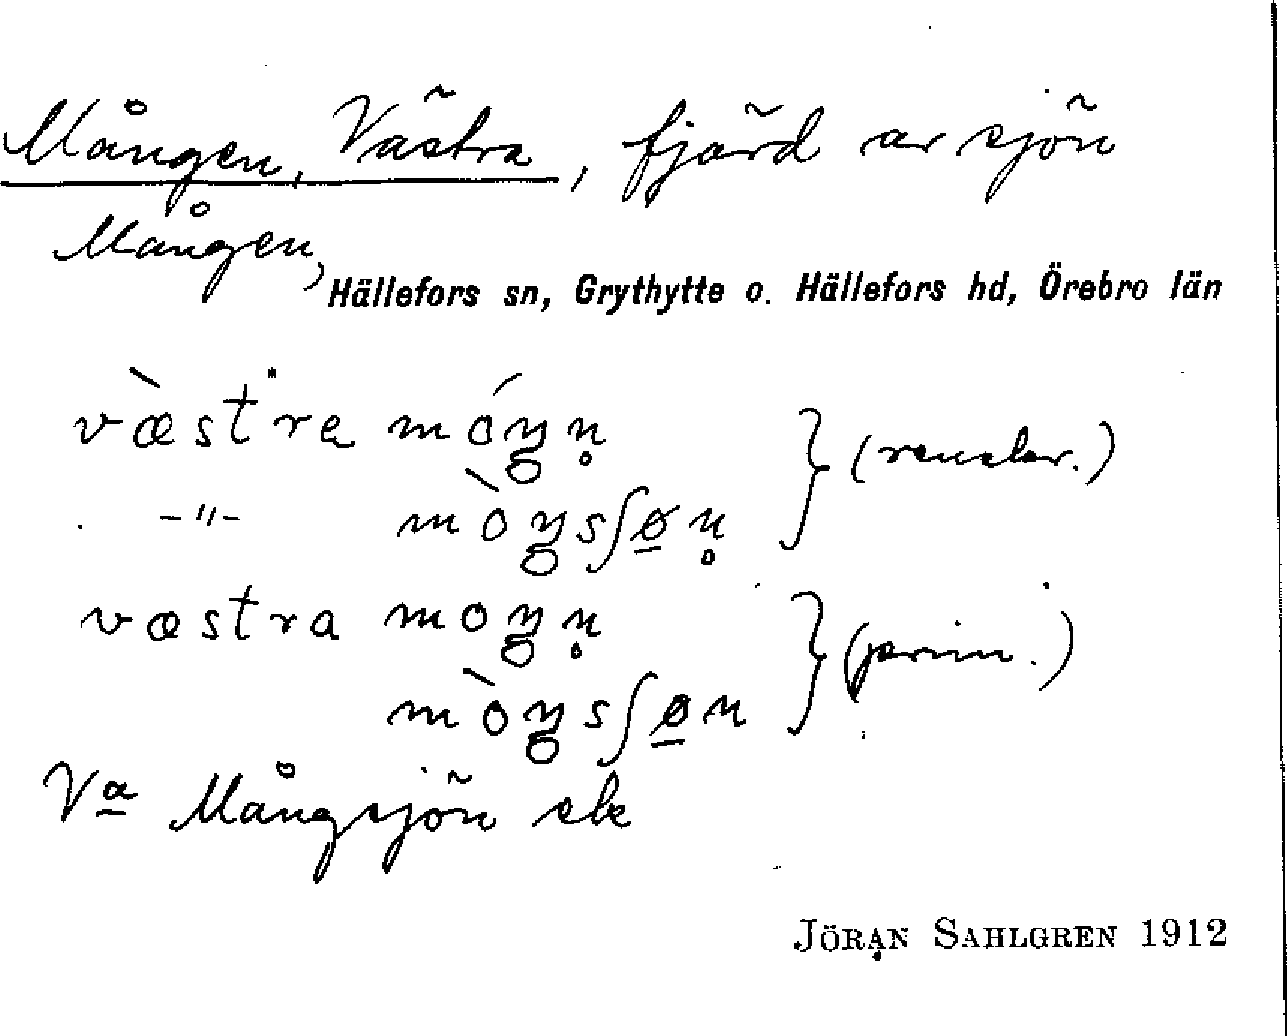 Mången, Västra, fjärd av sjön
Mången,
Hällefors sn, Grythytte o. Hällefors hd, Örebro län
væ̀stra móŋn̥
–"– mòŋsʃøn̥
væstra moŋn̥
mòŋsʃøn
Va Mångsjön
JÖRAN SAHLGREN 1912